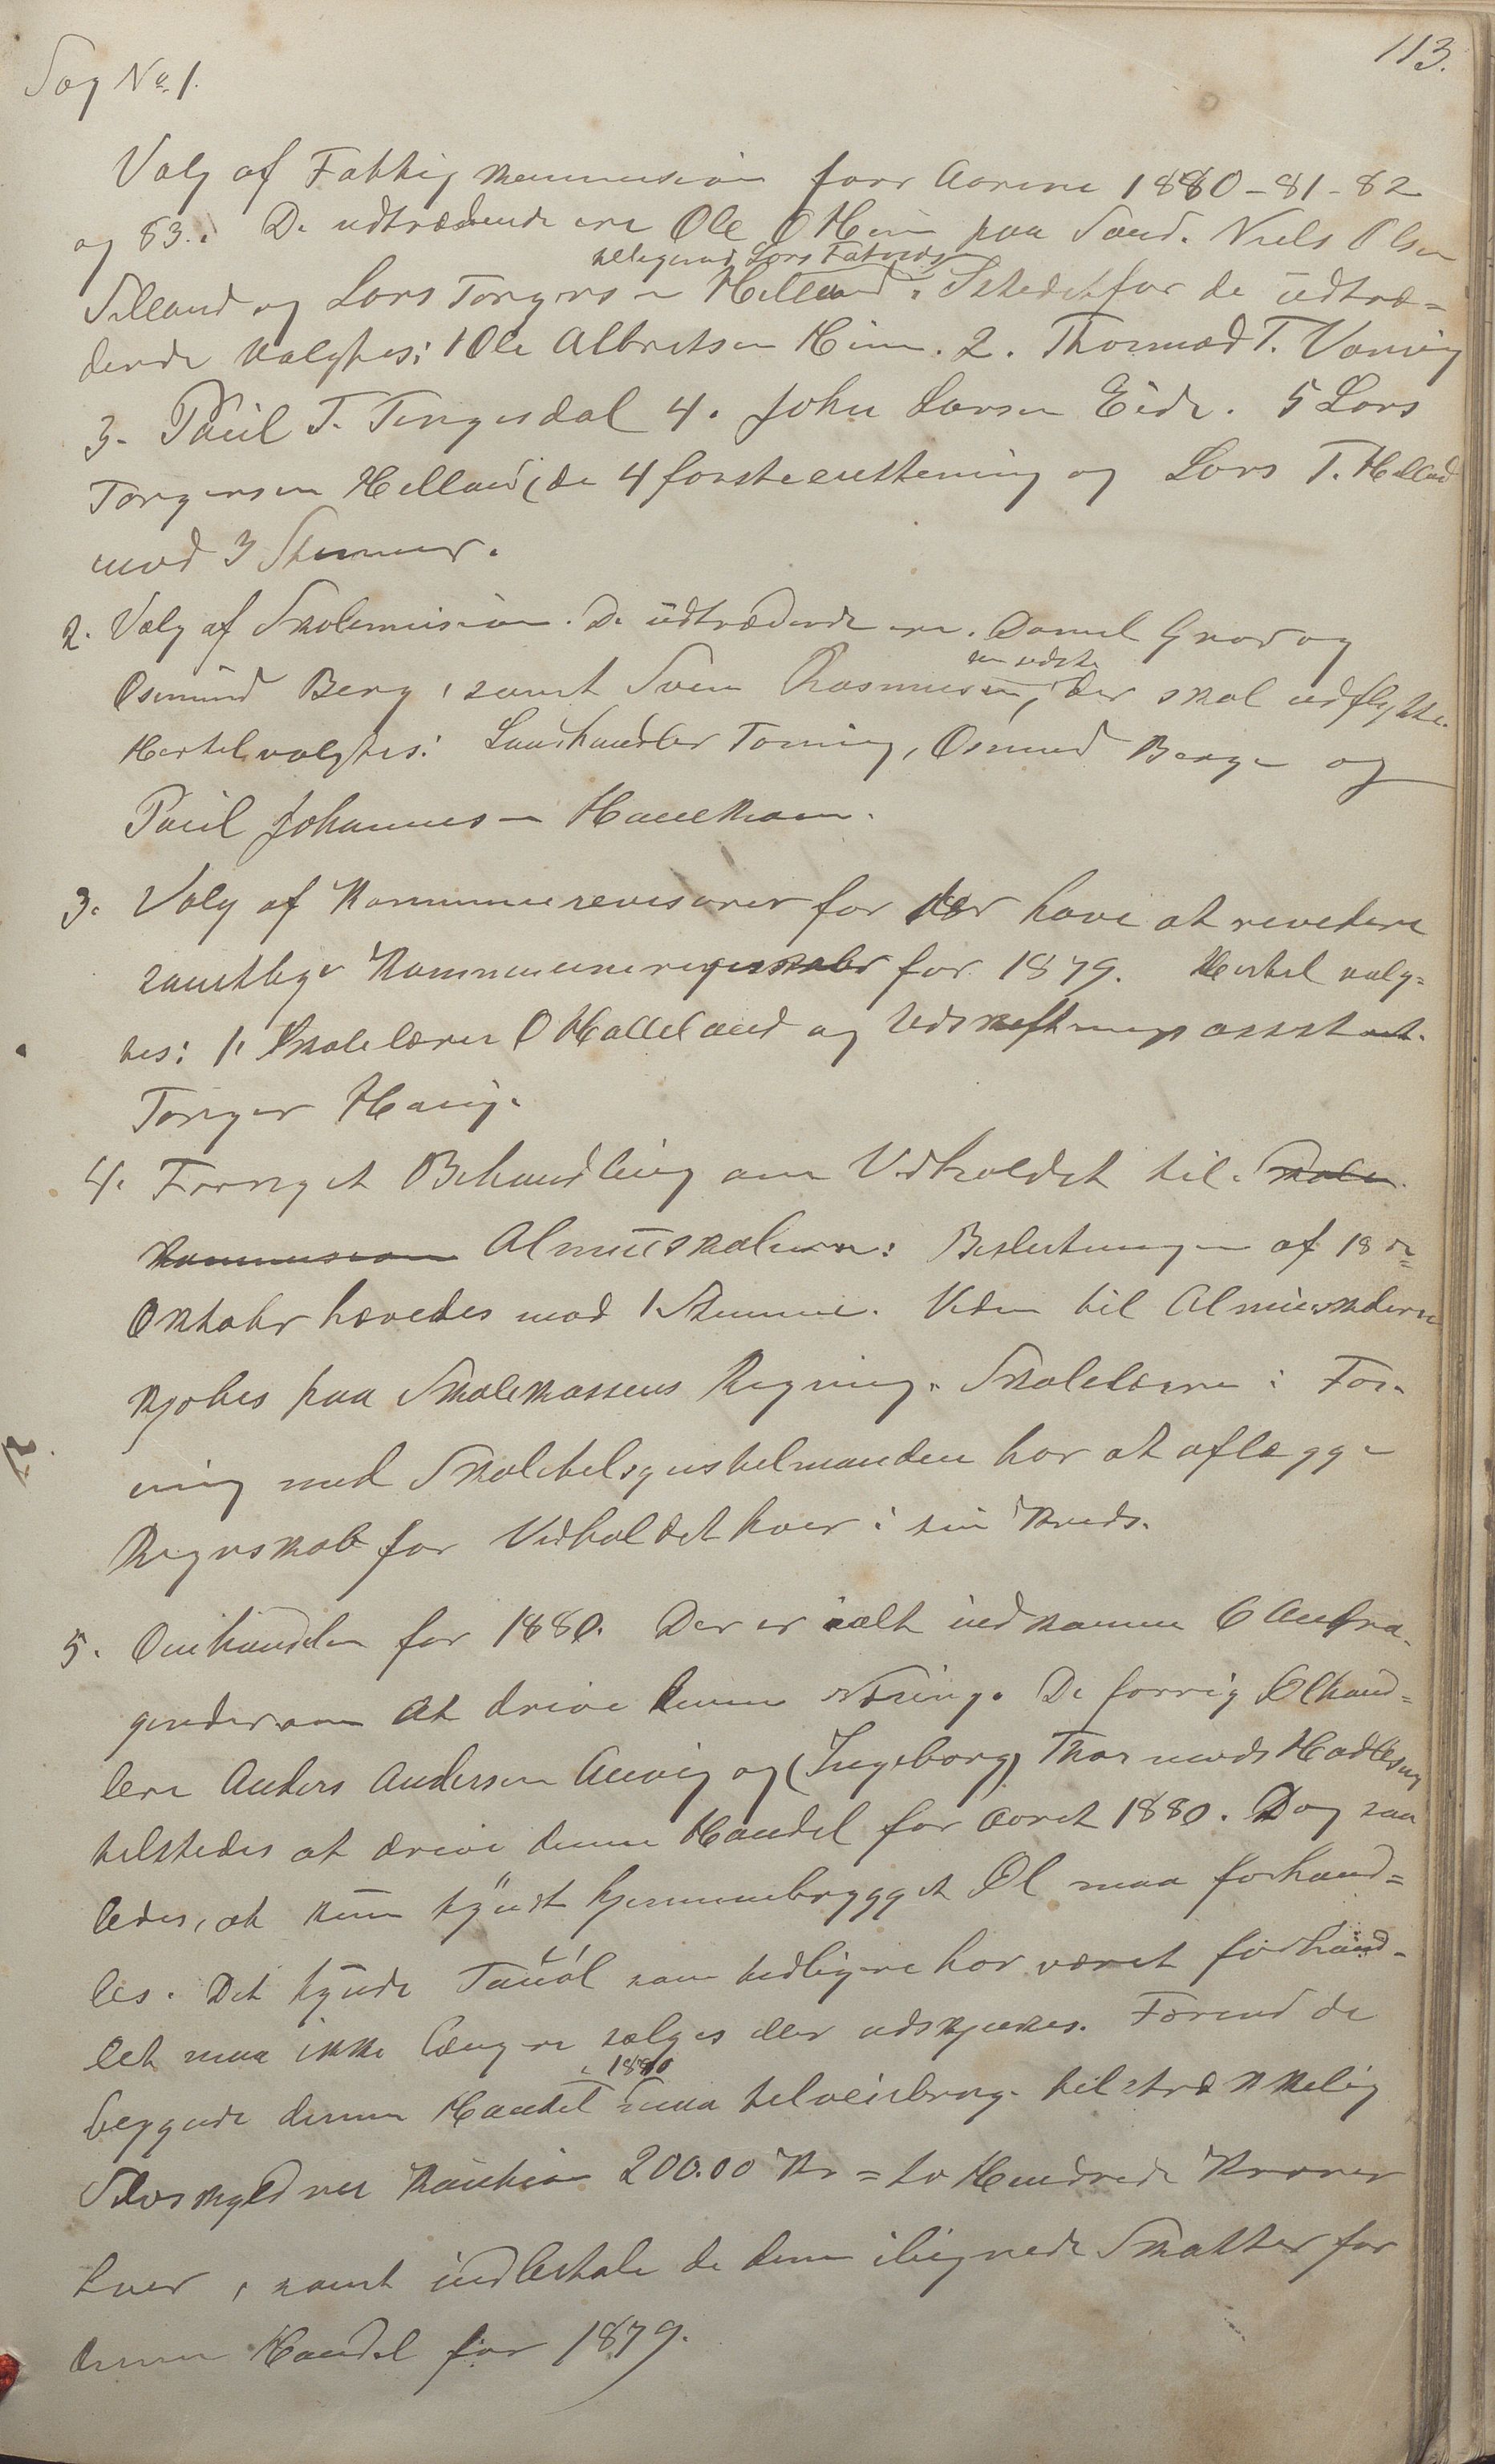 113.
Sag No. 1.
Valg af Fattigkommission for Aarene 1880-81-82
og 83. De udtrædende ere Ole O Hem paa Sand. Niels Olsen
Lars
Selland og Lars Torgersen Helland. Istedetfor de udtræ=
dende valgtes: 1 Ole Albretsen Hiim. 2. Thormod T. Vanvig
3. Paul T. Tengesdal 4. John Larsen Eide. 5 Lars
Torgersen Helland, de 4 første enstemmig og Lars T. Helland
mod 3 Stemmer.
2. Valg af Skolemision. De udtrædende ere. Daniel Gnod og
den sidste
Osmund Berg, samt Svein Rasmusen, der skal udflytte.
Hertil valgtes: Landhandler Toming, Osmund Berge og
Paul Johannesen Haueskaen.
3. Valg af Kommunerevisorer for der have at revedere
samtlige Kommuneregnskaber for 1879. Hertil valg=
tes: 1. Skolelærer O Halleland og Udskiftningsassistent.
Torger Haug.
4. Fornyet Behandling om Vedholdet til Skole
kommission Almueskolerne: Beslutningen af 18de
Oktober hævedes mod 1 Stemme. Veden til Almueskolerne
kjøbes paa Skolekassens Regning. Skolelærerne i For-
ning med Skoletilsynstelmanden har at aflægge
Regnskab for Vedholdet hver i sin Kreds.
5. Ølhandelen for 1880. Der er ialt indkomne 6 Andra-
gender om at drive denne Næring. De forrig Ølhand=
lere Anders Andersen Aavig og (Ingeborg) Thormods Hadlesug
tilstedes at drive denne Handel for Aaret 1880. Dog saa
ledes, at kun tyndt hjemmebrygget Øl maa forhand=
les. Det tynde Tauøl som tidligere har været forhand-
let maa ikke længere sælges eller udskjænkes. Førend de
i 1880
begynde denne Handel maa tilveiebrage tilstrækkelig
Selvskyldner Kaution 200.00 Kr = to Hundrede Kroner
hver, samt indbetale de dem ilignede Skatter for
denne Handel for 1879.